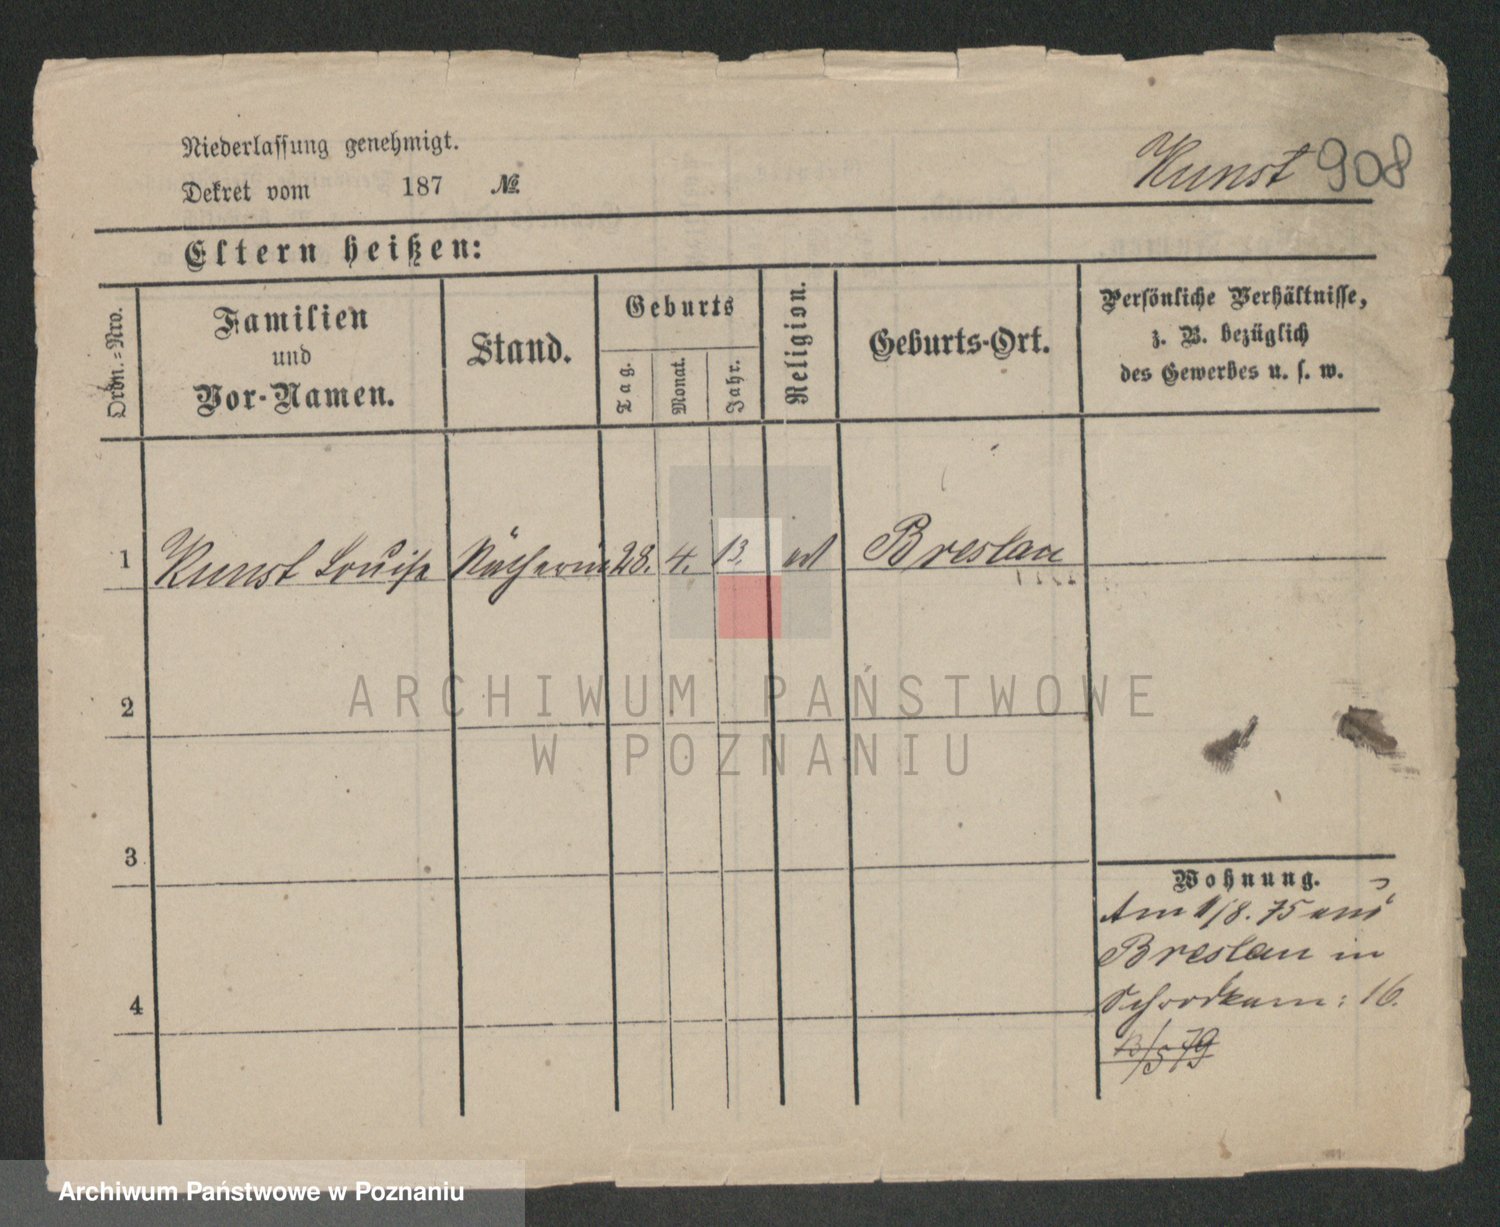 Niederlassung genehmigt.
Dekret vom 187 №
Kunst 908
Eltern heißen:
Ordn.-Nro.
Familien
und
Vor-Namen.
Stand.
Geburts
Tag.
Monat.
Jahr.
Religion.
Geburts-Ort.
Persönliche Verhältnisse,
z. B. bezüglich
des Gewerbes u. s. w.
1 Kunst Louise Nätherin 28. 4. 13. Breslau
2
3
4
Wohnung.
Am 1/8. 75 aus
Breslau in
Schrodkam: 16.
13/5 79
ARCHIWUM PAŃSTWOWE
W POZNANIU
Archiwum Państwowe w Poznaniu